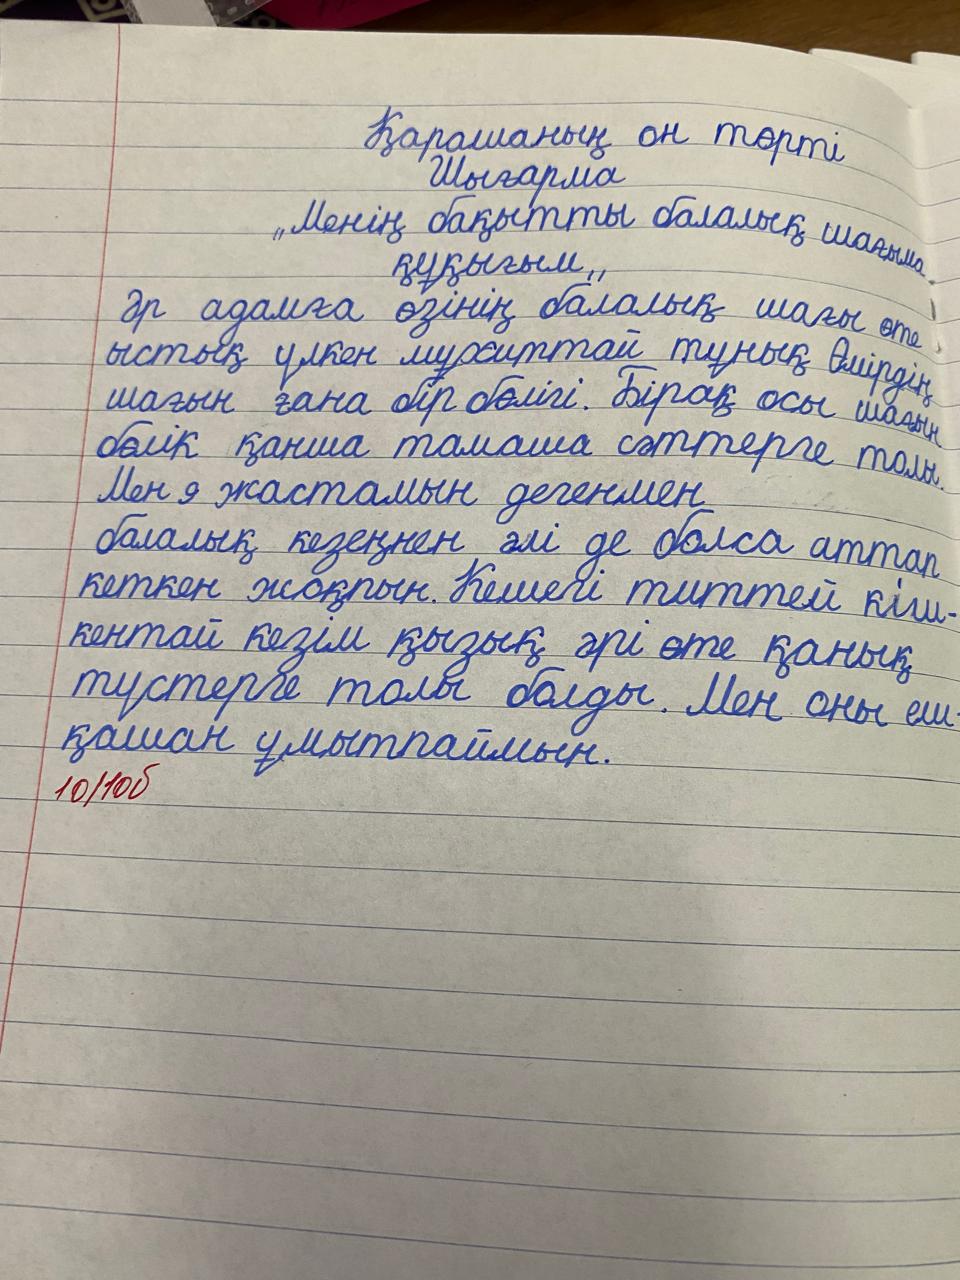 Қарашаның он төрті
Шығарма
„Менің бақытты балалық шағыма
құқығым„
Әр адамға өзінің балалық шағы өте
ыстық үлкен мұхиттай тұнық Өмірдің
шағын ғана бір бөлігі. Бірақ осы шағын
бөлік қанша тамаша сәттерге толы.
Мен 9 жастамын дегенмен
балалық кезеңнен әлі де болса аттап
кеткен жоқпын. Кешегі титтей кіш-
кентай кезім қызық әрі өте қанық
түстерге толы болды. Мен оны еш-
қашан ұмытпаймын.
10/10б